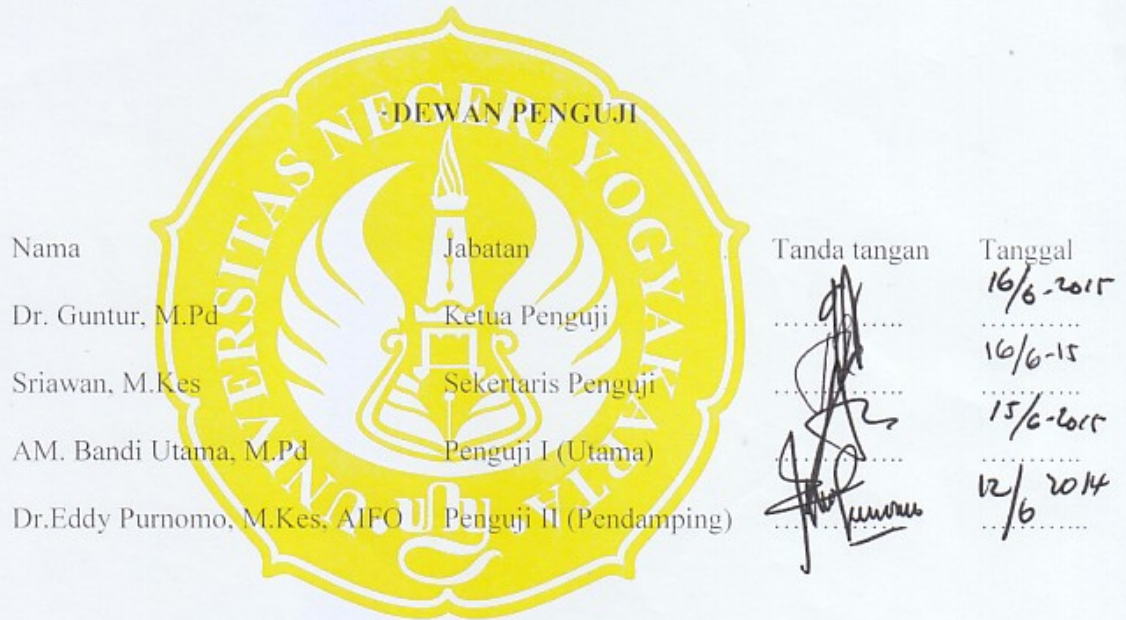 DEWAN PENGUJI
UNIVERSITAS NEGERI YOGYAKARTA
Nama Jabatan Tanda tangan Tanggal
Dr. Guntur, M.Pd Ketua Penguji ………….. 16/6-2015
Sriawan, M.Kes Sekertaris Penguji ………….. 16/6-15
AM. Bandi Utama, M.Pd Penguji I (Utama) ………….. 15/6-2015
Dr.Eddy Purnomo, M.Kes, AIFO Penguji II (Pendamping) ………….. 12/6 2014